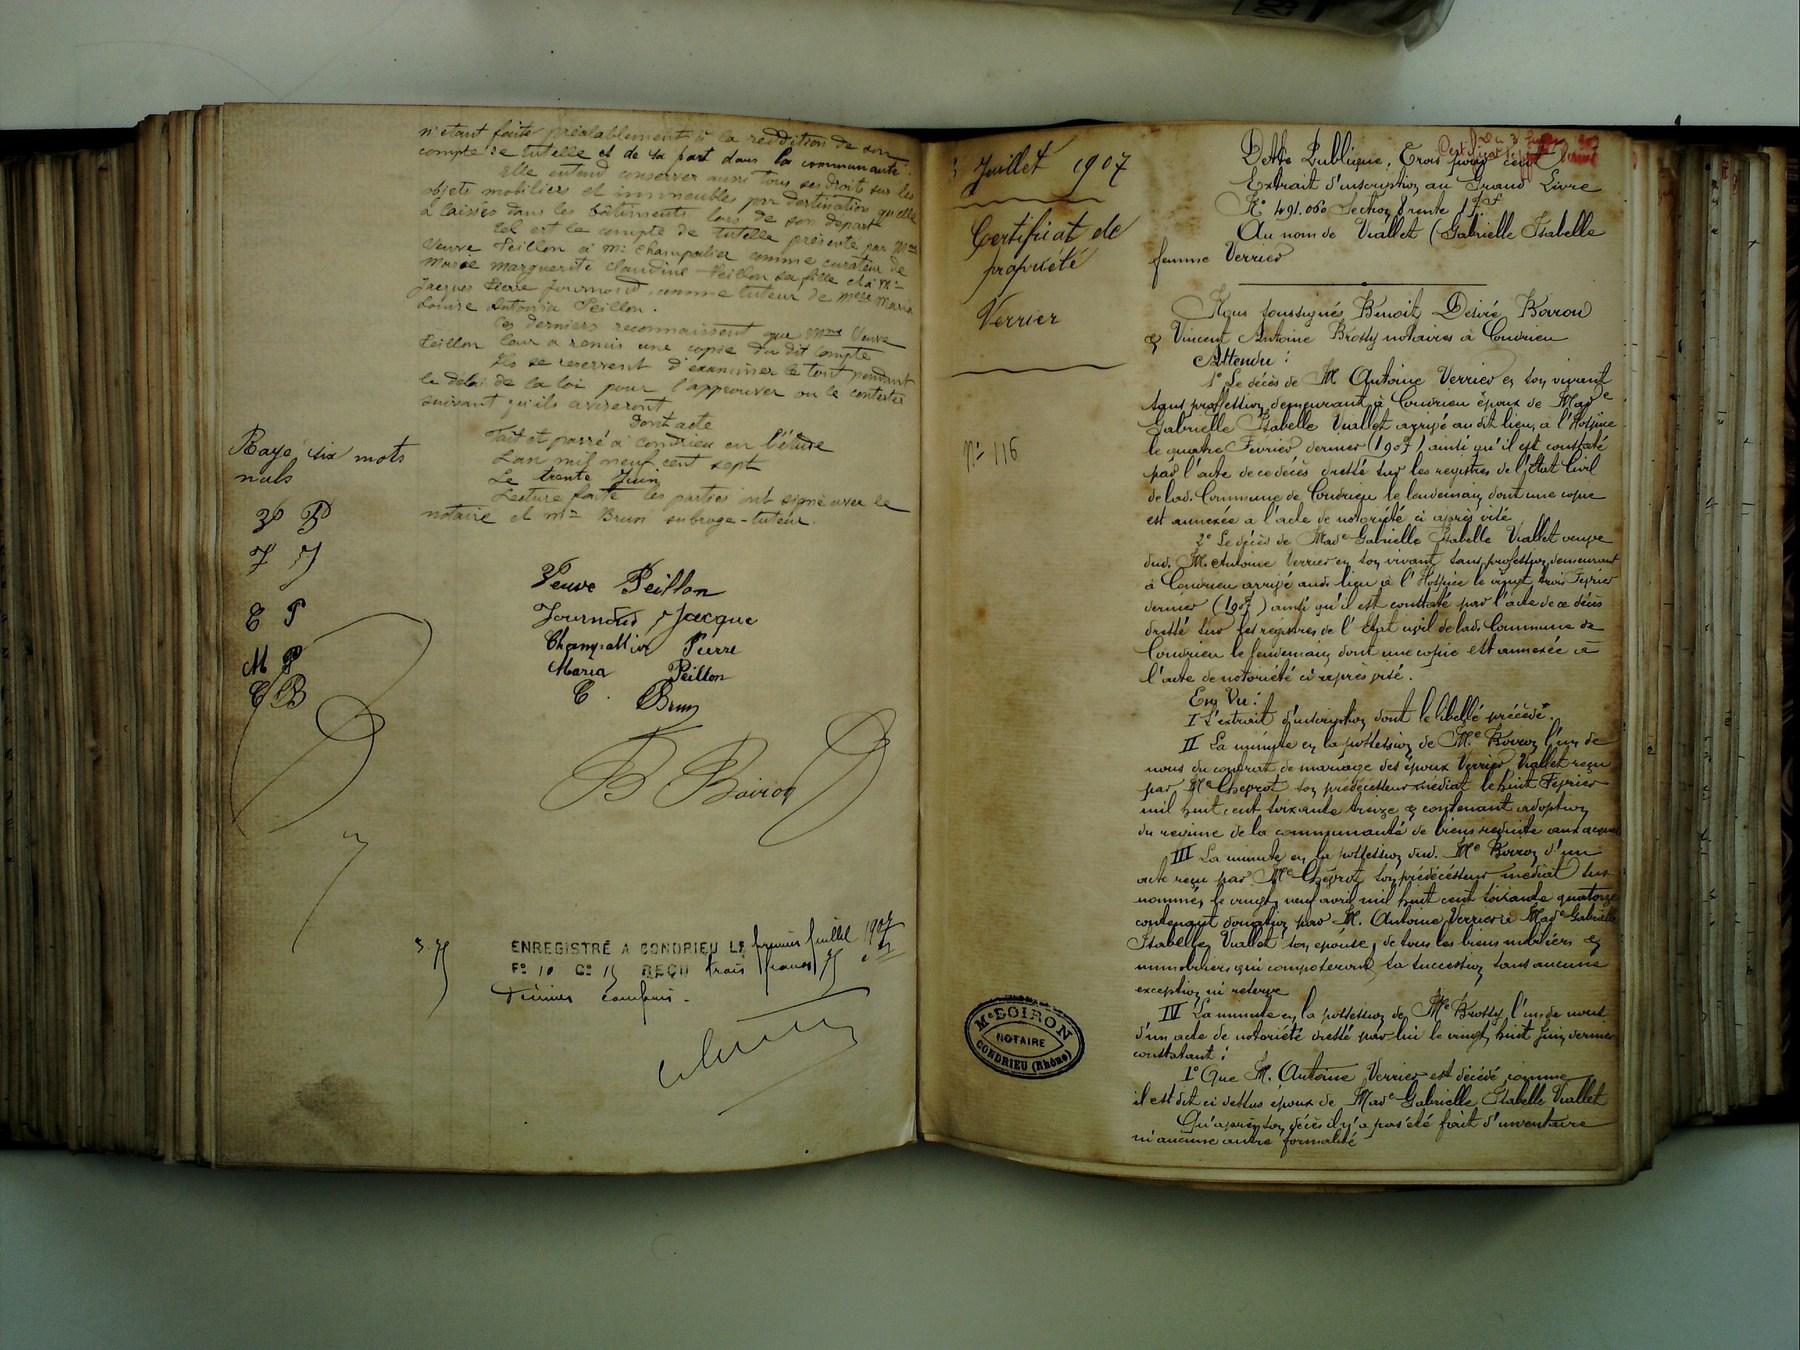 n'étant faite préalablement à la reddition de son
compte de tutelle et de sa part dans la communauté.
Elle entend conserver aussi tous ses droits sur les
objets mobiliers et immeubles par destination qu'elle
a laissés dans les bâtiments lors de son départ
Tel est le compte de tutelle présenté par Mme
Veuve Peillon à Mr Champallier comme curateur de
Marie Marguerite Claudine Peillon sa fille et à Mr
Jacques Pierre Journoud, comme tuteur de Melle Maria
Louise Antonia Peillon.
Ces derniers reconnaissent que Mme Veuve
Peillon leur a remis une copie du dit compte
Ils se réservent d'examiner le tout pendant
le délai de la loi pour l'approuver ou le contester
suivant qu'ils aviseront
Dont acte
Fait et passé à Condrieu en l'étude
L'an mil neuf cent sept
Le trente Juin
Lecture faite les parties ont signé avec le
notaire et Mr Brun subrogé-tuteur.
Rayé six mots
nuls
V P
J J
C P
M P
C B
Veuve Peillon
Journoud Jacque
Champallier Pierre
Maria Peillon
C. Brun
B Boiron
3.75
ENREGISTRÉ A CONDRIEU LE premier juillet 1907
Fo 10 Ce 15 REÇU trois francs 75
décimes compris.
3 Juillet 1907
Certificat de
propriété
Verrier
No 116
Me BOIRON
NOTAIRE
CONDRIEU (Rhône)
Dette Publique, Trois pour cent
Extrait d'inscription au Grand Livre
No 491.060 Section 8 rente
Au nom de Viallet (Gabrielle Isabelle
femme Verrier
Nous soussignés Benoit Désiré Boiron
& Vincent Antoine Brossy notaires à Condrieu
Attendu :
1o Le décès de M Antoine Verrier en son vivant
sans profession demeurant à Condrieu époux de Made
Gabrielle Isabelle Viallet arrivé au dit lieu, à l'Hospice
le quatre Février dernier (1907) ainsi qu'il est constaté
par l'acte de ce décès dressé sur les registres de l'État Civil
de lad. Commune de Condrieu le lendemain dont une copie
est annexée à l'acte de notoriété ci après visé
2o Le décès de Made Gabrielle Isabelle Viallet veuve
dud. M. Antoine Verrier en son vivant sans profession demeurant
à Condrieu arrivé aud. lieu à l'Hospice le vingt trois Février
dernier (1907) ainsi qu'il est constaté par l'acte de ce décès
dressé sur les registres de l'Etat civil de lad. Commune de
Condrieu le lendemain dont une copie est annexée à
l'acte de notoriété ci après visé.
En Vu :
I L'extrait d'inscription dont le libellé précède.
II La minute en la possession de Me Boiron l'un de
nous du contrat de mariage des époux Verrier Viallet reçu
par Me Cheprot son prédécesseur médiat le huit Février
mil huit cent soixante treize & contenant adoption
du régime de la communauté de biens réduite aux acquets
III La minute en la possession dud. Me Boiron d'un
acte reçu par Me Cheprot son prédécesseur médiat sus
nommés le vingt neuf avril mil huit cent soixante quatorze
contenant donation par M. Antoine Verrier à Made Gabrielle
Isabelle Viallet son épouse, de tous les biens mobiliers &
immobiliers qui composeront sa succession sans aucune
exception ni réserve
IV La minute en la possession de Me Brossy l'un de nous
d'un acte de notoriété dressé par lui le vingt huit Juin dernier
constatant :
1o Que M. Antoine Verrier est décédé comme
il est dit ci dessus époux de Made Gabrielle Isabelle Viallet
Qu'après son décès il n'y a pas été fait d'inventaire
ni aucune autre formalité